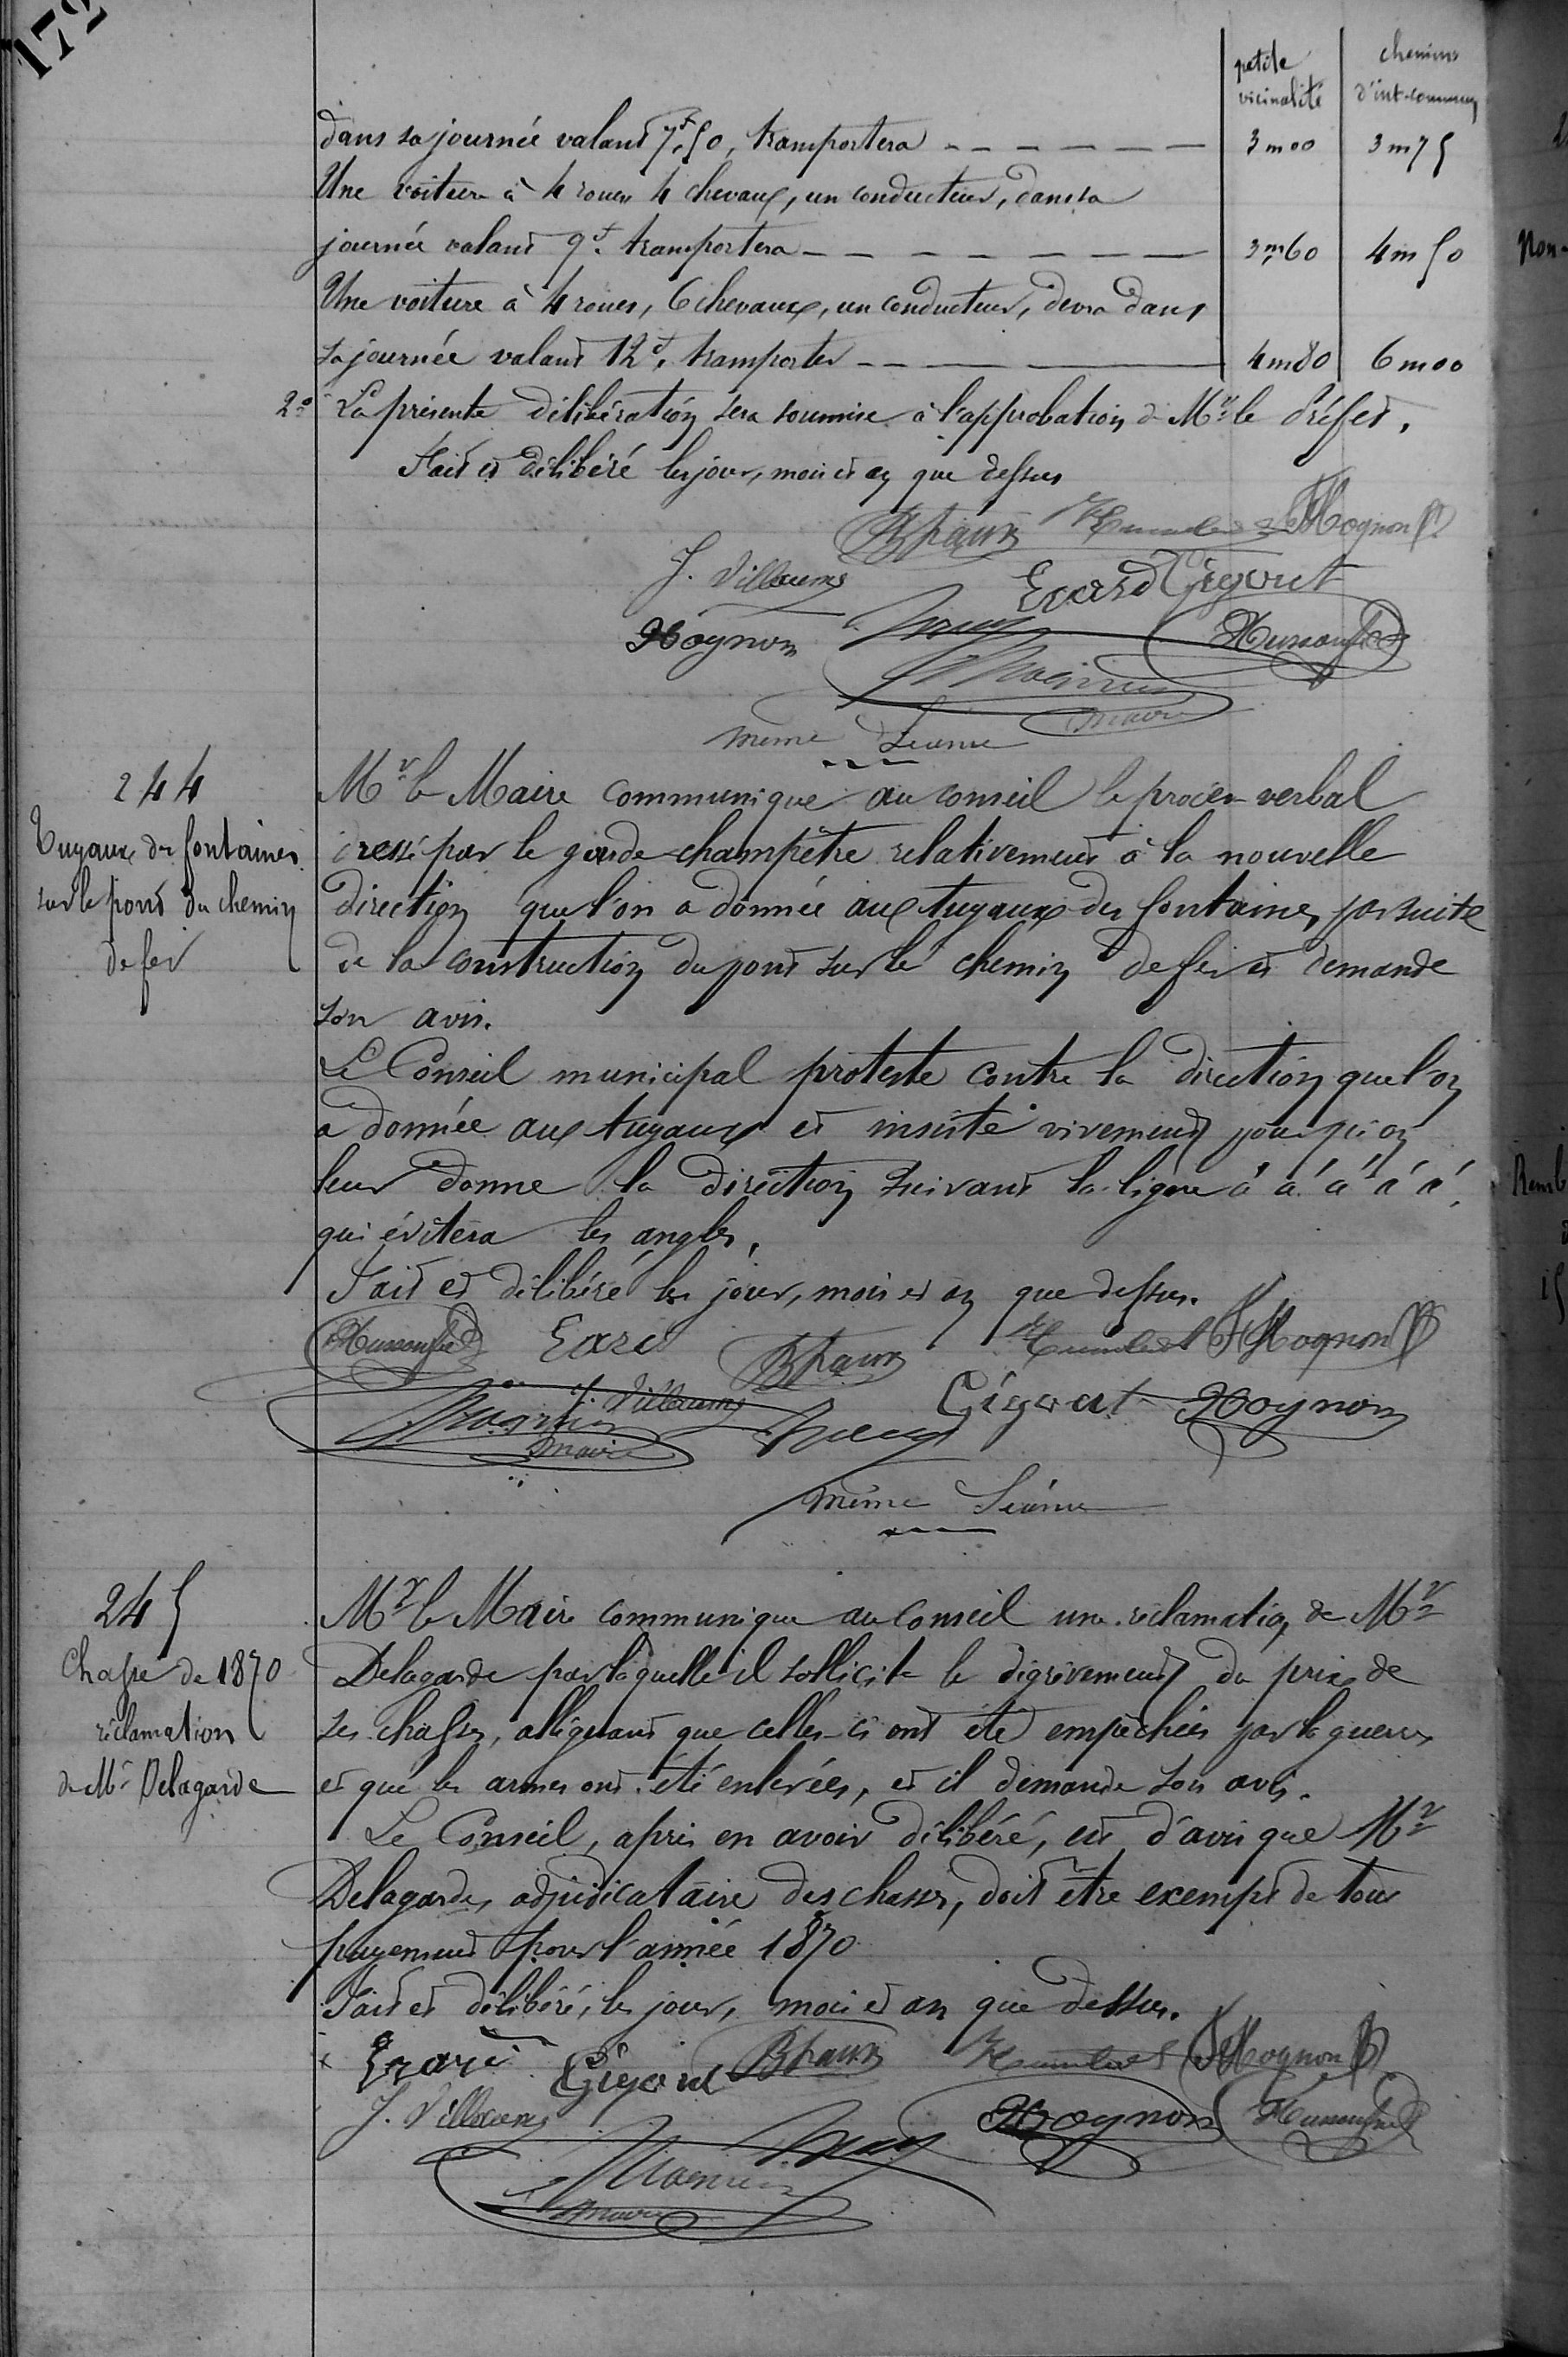 172
petite vicinalité | chemins d'int. commun
dans sa journée valant 7f.50, transportera - - - - - - 3m00 | 3m75
Une voiture à 4 roues 4 chevaux, un conducteur, dans sa
journée valant 9f. transportera - - - - - - - 3m60 | 4m50
Une voiture à 4 roues, 6 chevaux, un conducteur, devra dans
sa journée valant 12f, transporter - - - 4m80 | 6m00
2° La présente délibération sera soumise à l'approbation de Mr le Préfet.
Fait et délibéré les jour, mois et an que dessus
Mognon
J. Villaume Erard Gigout
Hognon
maire
même Séance
244
Tuyaux des fontaines
sur le pont du chemin
de fer
Mr le Maire communique au conseil le procès-verbal
dressé par le garde-champêtre relativement à la nouvelle
direction que l'on a donnée aux tuyaux des fontaines, par suite
de la construction du pont sur le chemin de fer et demande
son avis.
Le Conseil municipal proteste contre la direction que l'on
a donnée aux tuyaux et insiste vivement pour qu'on
leur donne la direction suivant la ligne a' a' a' a' a',
qui évitera les angles.
Fait et délibéré les jour, mois et an que dessus.
Erard Mognon
J. Villaume Gigout Hognon
maire
même Séance
245
Chasse de 1870
réclamation
de Mr Delagarde
Mr le Maire communique au Conseil une réclamation de Mr
Delagarde par laquelle il sollicite le dégrèvement du prix de
ses chasses, alléguant que celles-ci ont été empêchées par la guerre
et que les armes ont été enlevées, et il demande son avis.
Le Conseil, après en avoir délibéré, est d'avis que Mr
Delagarde, adjudicataire des chasses, doit être exempt de tout
payement pour l'année 1870
Fait et délibéré, les jour, mois et an que dessus.
Erard Gigout Mognon
J. Villaume Hognon
maire